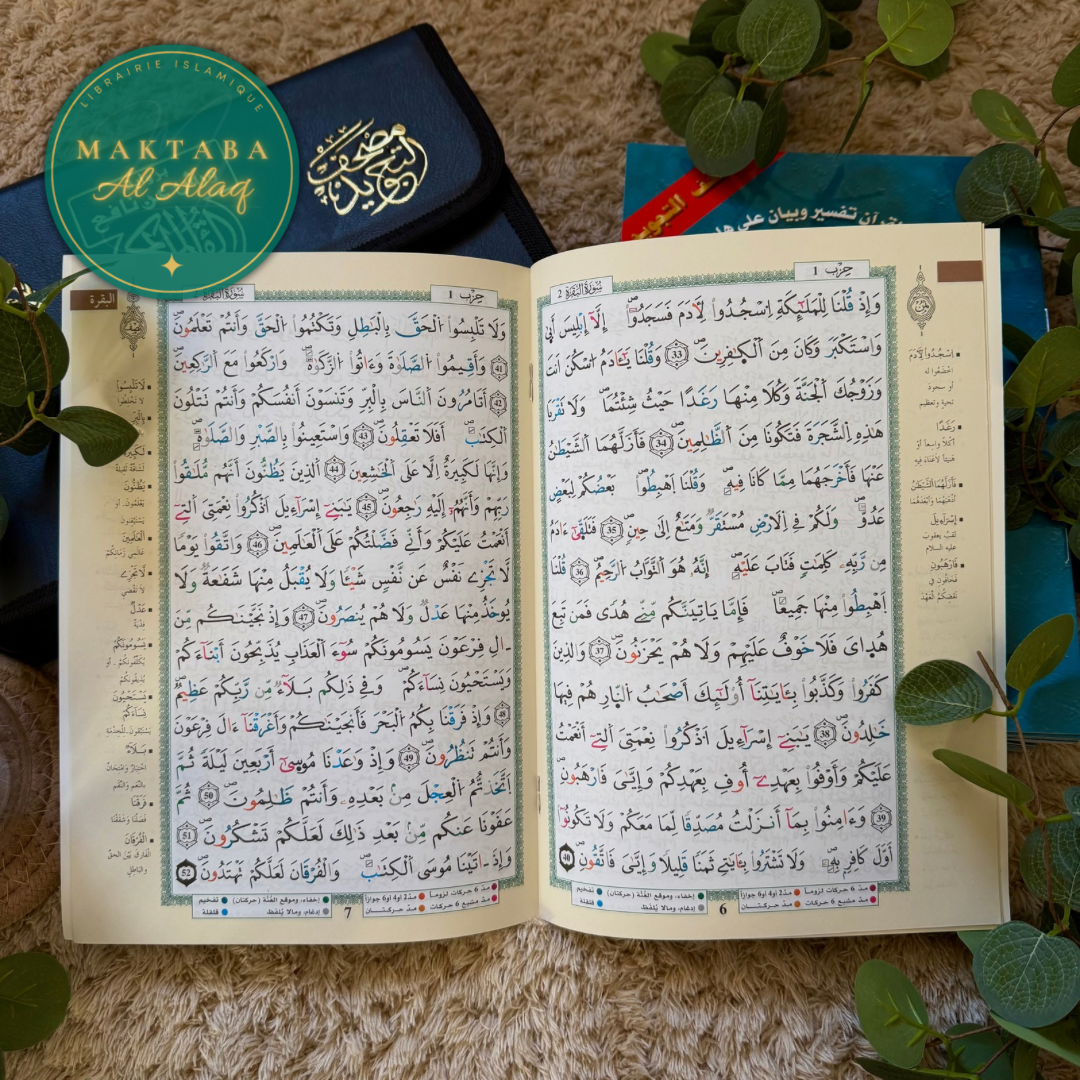 LIBRAIRIE ISLAMIQUE
MAKTABA
Al Alaq
مصحف التجويد
حِزْب 1
سُورَةُ البَقَرَةِ 2
وَإِذْ قُلْنَا لِلْمَلَٰٓئِكَةِ اِ۟سْجُدُواْ لِأٓدَمَ فَسَجَدُوٓاْ إِلَّآ إِبْلِيسَ أَب۪ىٰ
وَاسْتَكْبَرَ وَكَانَ مِنَ اَ۬لْكٰ۪فِرِينَ 33 وَقُلْنَا يَٰٓـَٔادَمُ اُ۟سْكُنَ اَنتَ
وَزَوْجُكَ اَ۬لْجَنَّةَ وَكُلَا مِنْهَا رَغَداً حَيْثُ شِئْتُمَا وَلَا تَقْرَبَا
هَٰذِهِ اِ۬لشَّجَرَةَ فَتَكُونَا مِنَ اَ۬لظَّٰلِمِينَ 34 فَأَزَلَّهُمَا اَ۬لشَّيْطَٰنُ
عَنْهَا فَأَخْرَجَهُمَا مِمَّا كَانَا فِيهِ وَقُلْنَا اَ۪هْبِطُواْ بَعْضُكُمْ لِبَعْضٍ
عَدُوٌّ وَلَكُمْ فِے اِ۬لَارْضِ مُسْتَقَرٌّ وَمَتَٰعٌ اِلَىٰ حِينٍ 35 فَتَلَقّ۪ىٰٓ ءَادَمُ
مِن رَّبِّهِۦ كَلِمَٰتٍ فَتَابَ عَلَيْهِ إِنَّهُۥ هُوَ اَ۬لتَّوَّابُ اُ۬لرَّحِيمُ 36 قُلْنَا
اَ۪هْبِطُواْ مِنْهَا جَمِيعاً فَإِمَّا يَاتِيَنَّكُم مِّنِّے هُدىً فَمَن تَبِعَ
هُدَايَ فَلَا خَوْفٌ عَلَيْهِمْ وَلَا هُمْ يَحْزَنُونَ 37 وَالذِينَ
كَفَرُواْ وَكَذَّبُواْ بِـَٔايَٰتِنَآ أُوْلَٰٓئِكَ أَصْحَٰبُ اُ۬لنّ۪ارِ هُمْ فِيهَا
خَٰلِدُونَ 38 يَٰبَنِےٓ إِسْرَآءِيلَ اَ۟ذْكُرُواْ نِعْمَتِيَ اَ۬لتِےٓ أَنْعَمْتُ
عَلَيْكُمْ وَأَوْفُواْ بِعَهْدِےٓ أُوفِ بِعَهْدِكُمْ وَإِيَّٰيَ فَارْهَبُونِ
39 وَءَامِنُواْ بِمَآ أَنزَلْتُ مُصَدِّقاً لِّمَا مَعَكُمْ وَلَا تَكُونُوٓاْ
أَوَّلَ كَافِرِۢ بِهِۦ وَلَا تَشْتَرُواْ بِـَٔايَٰتِے ثَمَناً قَلِيلاً وَإِيَّٰيَ فَاتَّقُونِ 40
اسْجُدُواْ لِأَدَمَ
اخْضَعُوا له
أو سجودَ
تحيةٍ وتعظيم
رَغَداً
أكلاً واسعاً أوْ
هَنِيئاً لا عَنَاءَ فِيهِ
فَأَزَلَّهُمَا اَلشَّيْطَٰنُ
إِسْرَآءِيلَ
لقبُ يعقوبَ
عليه السلام
فَارْهَبُونِ
فَخَافُونِ فِي
نَقْضِكُمُ الْعَهْدَ
مدّ 6 حركات لزوماً
مدّ 2 أو 4 أو 6 جوازاً
إخفاء، ومواقع الغُنَّة (حركتان)
تفخيم
مدّ مشبع 6 حركات
مدّ حركتان
إدغام، ومالا يُلفَظ
قلقلة
6
حِزْب 1
البقرة
وَلَا تَلْبِسُواْ اُ۬لْحَقَّ بِالْبَٰطِلِ وَتَكْتُمُواْ اُ۬لْحَقَّ وَأَنتُمْ تَعْلَمُونَ
41 وَأَقِيمُواْ اُ۬لصَّلَوٰةَ وَءَاتُواْ اُ۬لزَّكَوٰةَ وَارْكَعُواْ مَعَ اَ۬لرَّٰكِعِينَ
42 أَتَامُرُونَ اَ۬لنَّاسَ بِالْبِرِّ وَتَنسَوْنَ أَنفُسَكُمْ وَأَنتُمْ تَتْلُونَ
اَ۬لْكِتَٰبَ أَفَلَا تَعْقِلُونَ 43 وَاسْتَعِينُواْ بِالصَّبْرِ وَالصَّلَوٰةِ
وَإِنَّهَا لَكَبِيرَةٌ اِلَّا عَلَى اَ۬لْخَٰشِعِينَ 44 اَ۬لذِينَ يَظُنُّونَ أَنَّهُم مُّلَٰقُواْ
رَبِّهِمْ وَأَنَّهُمُۥٓ إِلَيْهِ رَٰجِعُونَ 45 يَٰبَنِےٓ إِسْرَآءِيلَ اَ۟ذْكُرُواْ نِعْمَتِيَ اَ۬لتِےٓ
أَنْعَمْتُ عَلَيْكُمْ وَأَنِّے فَضَّلْتُكُمْ عَلَى اَ۬لْعَٰلَمِينَ 46 وَاتَّقُواْ يَوْماً
لَّا تَجْزِے نَفْسٌ عَن نَّفْسٍ شَيْـٔاً وَلَا يُقْبَلُ مِنْهَا شَفَٰعَةٌ وَلَا
يُوخَذُ مِنْهَا عَدْلٌ وَلَا هُمْ يُنصَرُونَ 47 وَإِذْ نَجَّيْنَٰكُم مِّنَ
اٰلِ فِرْعَوْنَ يَسُومُونَكُمْ سُوٓءَ اَ۬لْعَذَابِ يُذَبِّحُونَ أَبْنَآءَكُمْ
وَيَسْتَحْيُونَ نِسَآءَكُمْ وَفِے ذَٰلِكُم بَلَآءٌ مِّن رَّبِّكُمْ عَظِيمٌ
48 وَإِذْ فَرَقْنَا بِكُمُ اُ۬لْبَحْرَ فَأَنجَيْنَٰكُمْ وَأَغْرَقْنَآ ءَالَ فِرْعَوْنَ
وَأَنتُمْ تَنظُرُونَ 49 وَإِذْ وَٰعَدْنَا مُوس۪ىٰٓ أَرْبَعِينَ لَيْلَةً ثُمَّ
اَ۪تَّخَذتُّمُ اُ۬لْعِجْلَ مِنۢ بَعْدِهِۦ وَأَنتُمْ ظَٰلِمُونَ 50 ثُمَّ
عَفَوْنَا عَنكُم مِّنۢ بَعْدِ ذَٰلِكَ لَعَلَّكُمْ تَشْكُرُونَ 51
وَإِذَ اٰتَيْنَا مُوسَى اَ۬لْكِتَٰبَ وَالْفُرْقَانَ لَعَلَّكُمْ تَهْتَدُونَ 52
لَا تَلْبِسُواْ
لا تَخْلِطُوا
يَظُنُّونَ
يَعْلَمُونَ، أو
يَسْتَيْقِنُونَ
الْعَٰلَمِينَ
عَالَمِي زَمَانِكُمْ
لَّا تَجْزِے
لا تَقْضِي
عَدْلٌ
فِدْيَةٌ
يَسُومُونَكُمْ
يُكَلِّفُونَكُمْ، أو
يُذِيقُونَكُمْ
يَسْتَحْيُونَ
نِسَآءَكُمْ
بَلَآءٌ
اخْتِبَارٌ وَامْتِحَانٌ
بِالنِّعَمِ والنِّقَمِ
فَرَقْنَا
فَصَلْنَا وَشَقَقْنَا
الْفُرْقَانَ
الفَارِقَ بَيْنَ الحَقِّ
والبَاطِلِ
مدّ 6 حركات لزوماً
مدّ 2 أو 4 أو 6 جوازاً
إخفاء، ومواقع الغُنَّة (حركتان)
تفخيم
مدّ مشبع 6 حركات
مدّ حركتان
إدغام، ومالا يُلفَظ
قلقلة
7